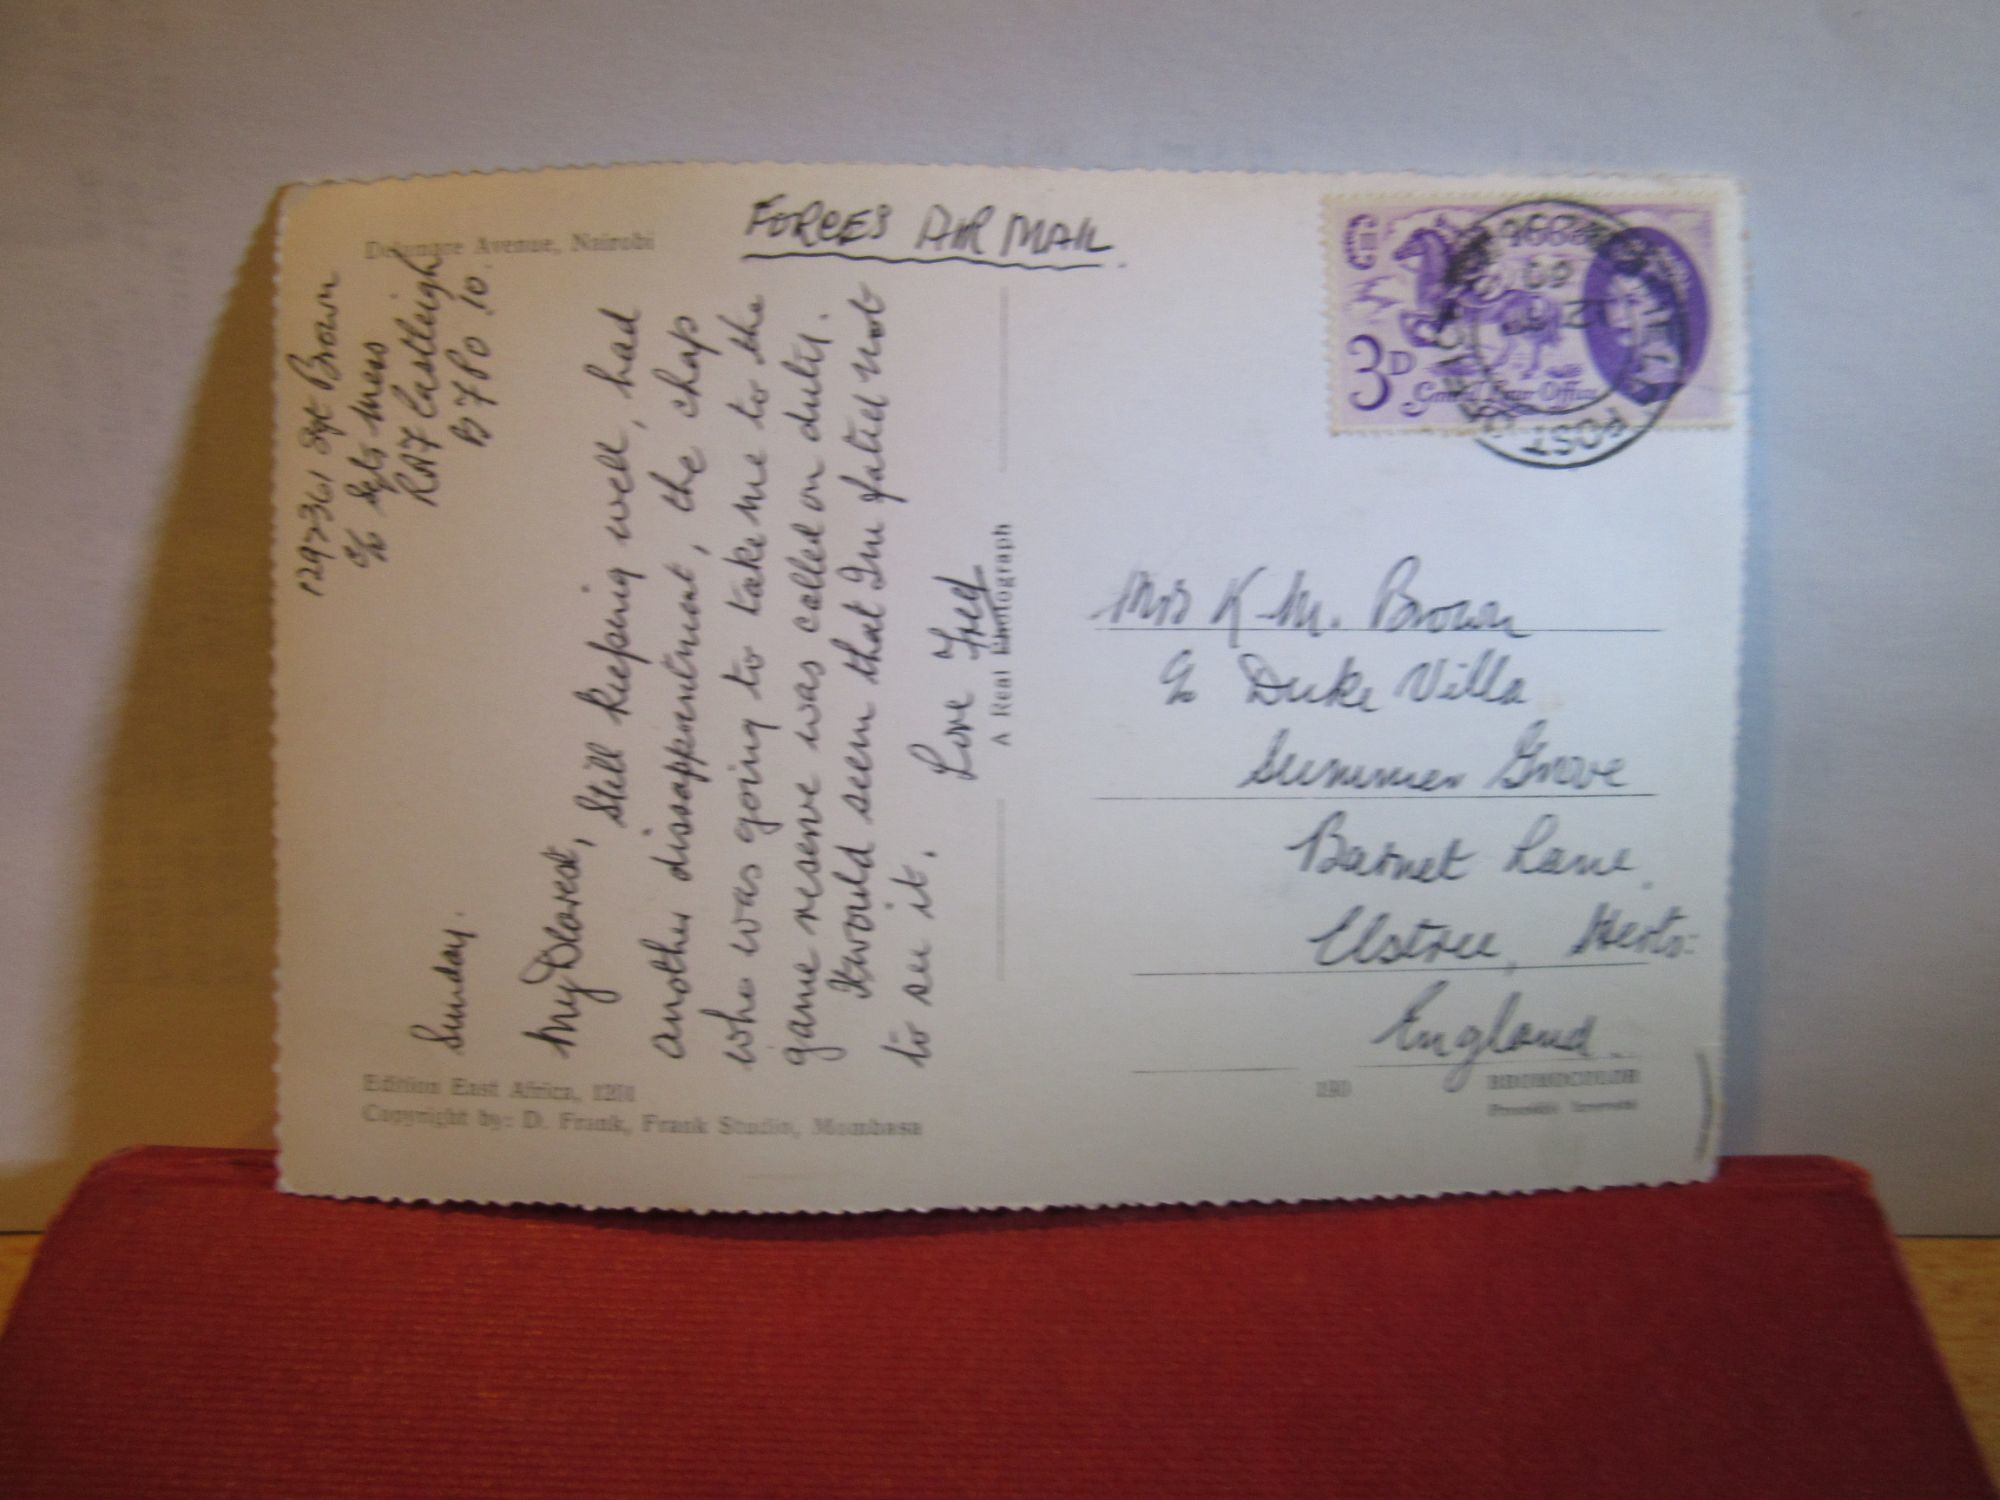 Delamere Avenue, Nairobi
FORCES AIR MAIL
1297361 Sgt Brown
c/o Sgts Mess
RAF Eastleigh
B F P O 10.
Sunday.
My Dearest,
Still keeping well, had
another dissappointment, the chap
who was going to take me to the
game reserve was called on duty.
It would seem that Im fated not
to see it.
Love Fred
A Real Photograph
Edition East Africa, 1201
Copyright by: D. Frank, Frank Studio, Mombasa
3D
General Letter Office
POST
60
Mrs K. M. Brown
c/o Duke Villa
Summer Grove
Barnet Lane.
Elstree, Herts:
England.
BROMOCOLOR